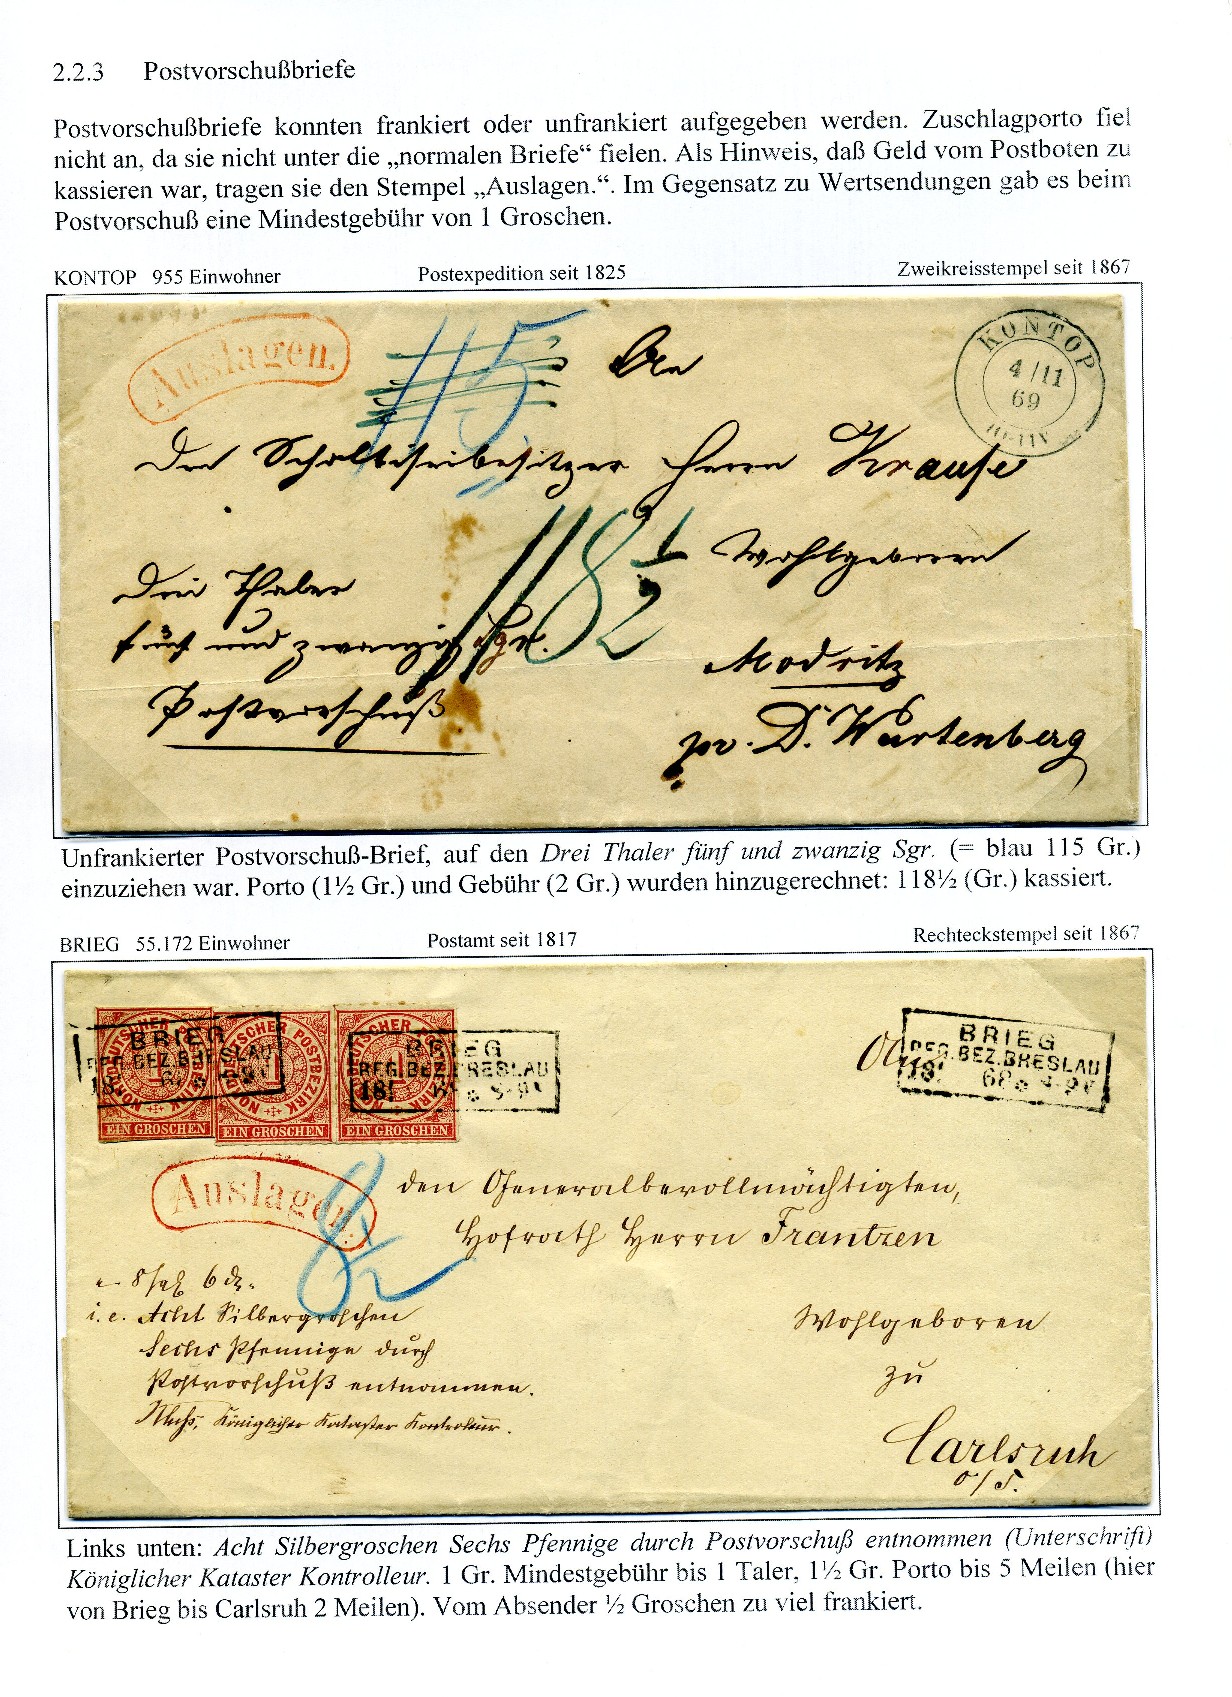 2.2.3 Postvorschußbriefe
Postvorschußbriefe konnten frankiert oder unfrankiert aufgegeben werden. Zuschlagporto fiel
nicht an, da sie nicht unter die „normalen Briefe“ fielen. Als Hinweis, daß Geld vom Postboten zu
kassieren war, tragen sie den Stempel „Auslagen.“. Im Gegensatz zu Wertsendungen gab es beim
Postvorschuß eine Mindestgebühr von 1 Groschen.
KONTOP 955 Einwohner Postexpedition seit 1825 Zweikreisstempel seit 1867
Auslagen.
115
An
KONTOP
4/11
69
Den Scholtiseibesitzer Herrn Krause
118 1/2
Wohlgeboren
Drei Thaler
fünf und zwanzig Sgr.
Postvorschuß
Modritz
pr. D. Wartenberg
Unfrankierter Postvorschuß-Brief, auf den Drei Thaler fünf und zwanzig Sgr. (= blau 115 Gr.)
einzuziehen war. Porto (1½ Gr.) und Gebühr (2 Gr.) wurden hinzugerechnet: 118½ (Gr.) kassiert.
BRIEG 55.172 Einwohner Postamt seit 1817 Rechteckstempel seit 1867
NORDDEUTSCHER POSTBEZIRK
EIN GROSCHEN
NORDDEUTSCHER POSTBEZIRK
EIN GROSCHEN
NORDDEUTSCHER POSTBEZIRK
EIN GROSCHEN
BRIEG
REG.BEZ.BRESLAU
BRIEG
REG.BEZ.BRESLAU
BRIEG
REG.BEZ.BRESLAU
68 8-9V
An
Auslagen.
8 1/2
den Generalbevollmächtigten,
Hofrath Herrn Frantzen
8 sgl 6 d.
i. e. Acht Silbergroschen
Sechs Pfennige durch
Postvorschuß entnommen.
Königlicher Kataster Kontroleur.
Wohlgeboren
zu
Carlsruh
o/S.
Links unten: Acht Silbergroschen Sechs Pfennige durch Postvorschuß entnommen (Unterschrift)
Königlicher Kataster Kontrolleur. 1 Gr. Mindestgebühr bis 1 Taler, 1½ Gr. Porto bis 5 Meilen (hier
von Brieg bis Carlsruh 2 Meilen). Vom Absender ½ Groschen zu viel frankiert.